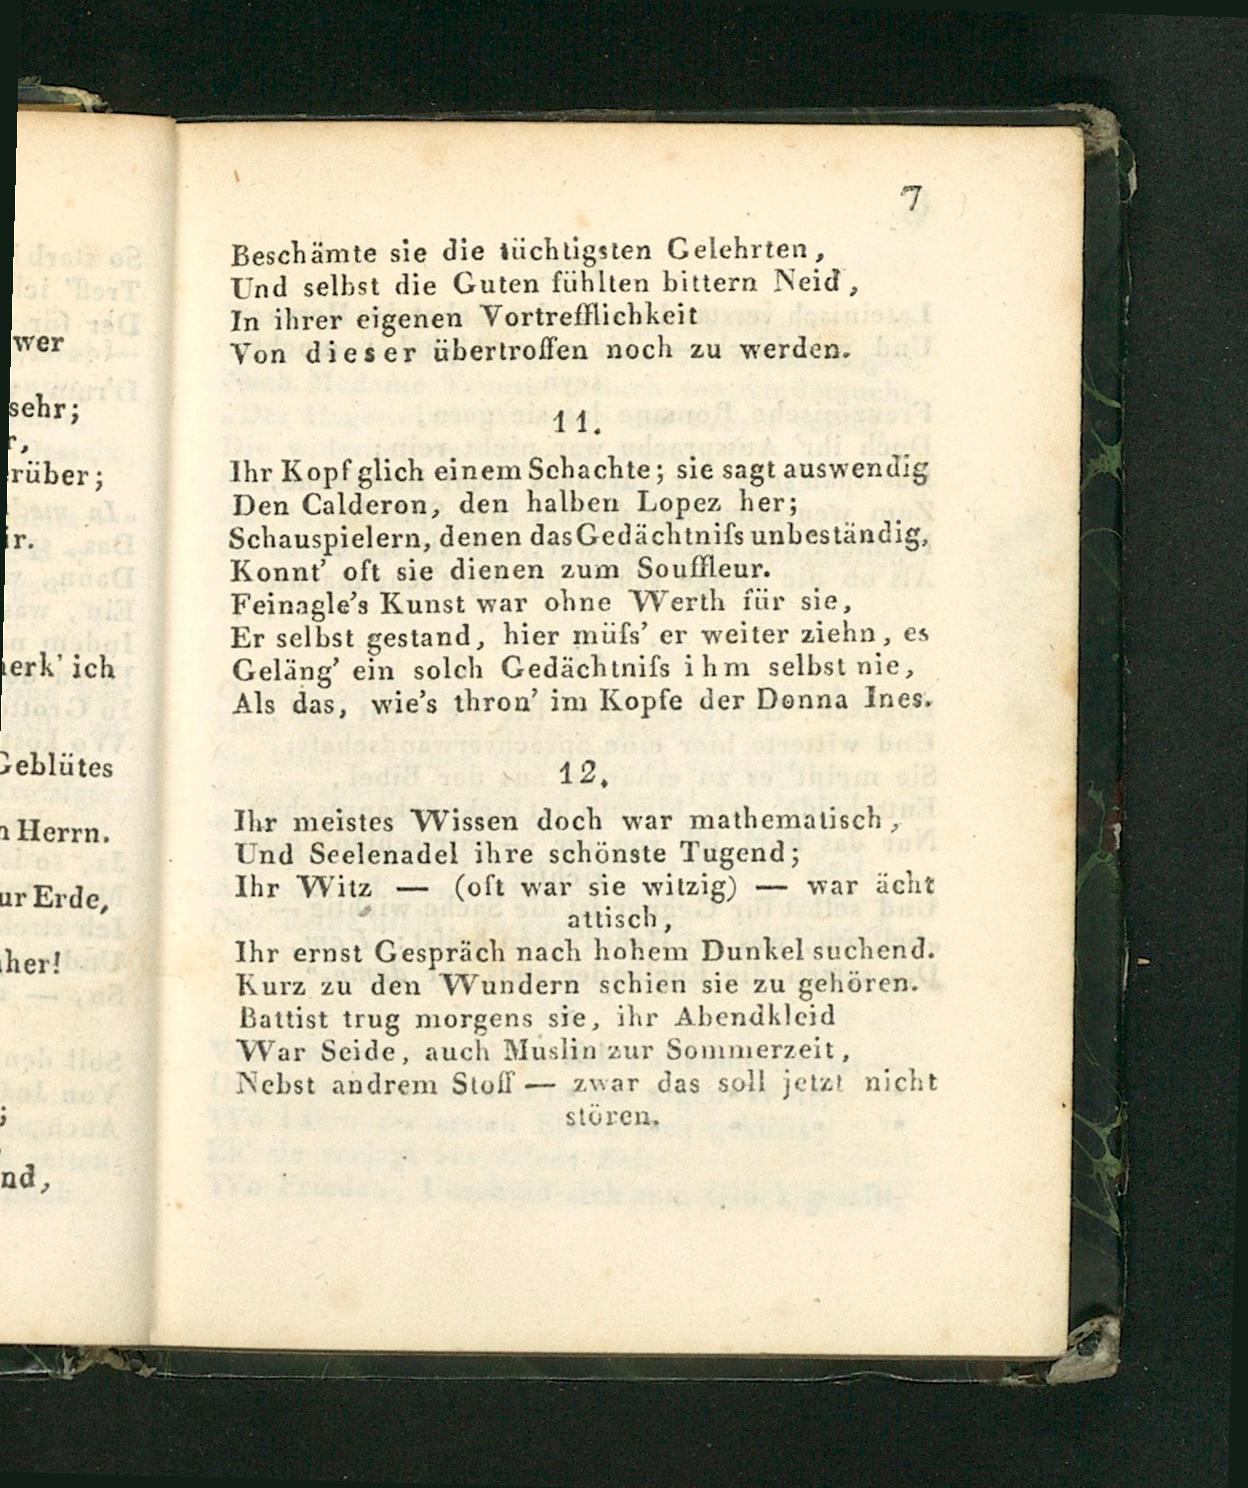 wer
sehr;
r,
rüber;
ir.
erk' ich
Geblütes
n Herrn.
ur Erde,
her!
;
nd,
7
Beschämte sie die tüchtigsten Gelehrten,
Und selbst die Guten fühlten bittern Neid,
In ihrer eigenen Vortrefflichkeit
Von dieser übertroffen noch zu werden.
11.
Ihr Kopf glich einem Schachte; sie sagt auswendig
Den Calderon, den halben Lopez her;
Schauspielern, denen das Gedächtniſs unbeständig,
Konnt' oft sie dienen zum Souffleur.
Feinagle's Kunst war ohne Werth für sie,
Er selbst gestand, hier müſs' er weiter ziehn, es
Geläng' ein solch Gedächtniſs ihm selbst nie,
Als das, wie's thron' im Kopfe der Donna Ines.
12.
Ihr meistes Wissen doch war mathematisch,
Und Seelenadel ihre schönste Tugend;
Ihr Witz — (oft war sie witzig) — war ächt
attisch,
Ihr ernst Gespräch nach hohem Dunkel suchend.
Kurz zu den Wundern schien sie zu gehören.
Battist trug morgens sie, ihr Abendkleid
War Seide, auch Muslin zur Sommerzeit,
Nebst andrem Stoff — zwar das soll jetzt nicht
stören.